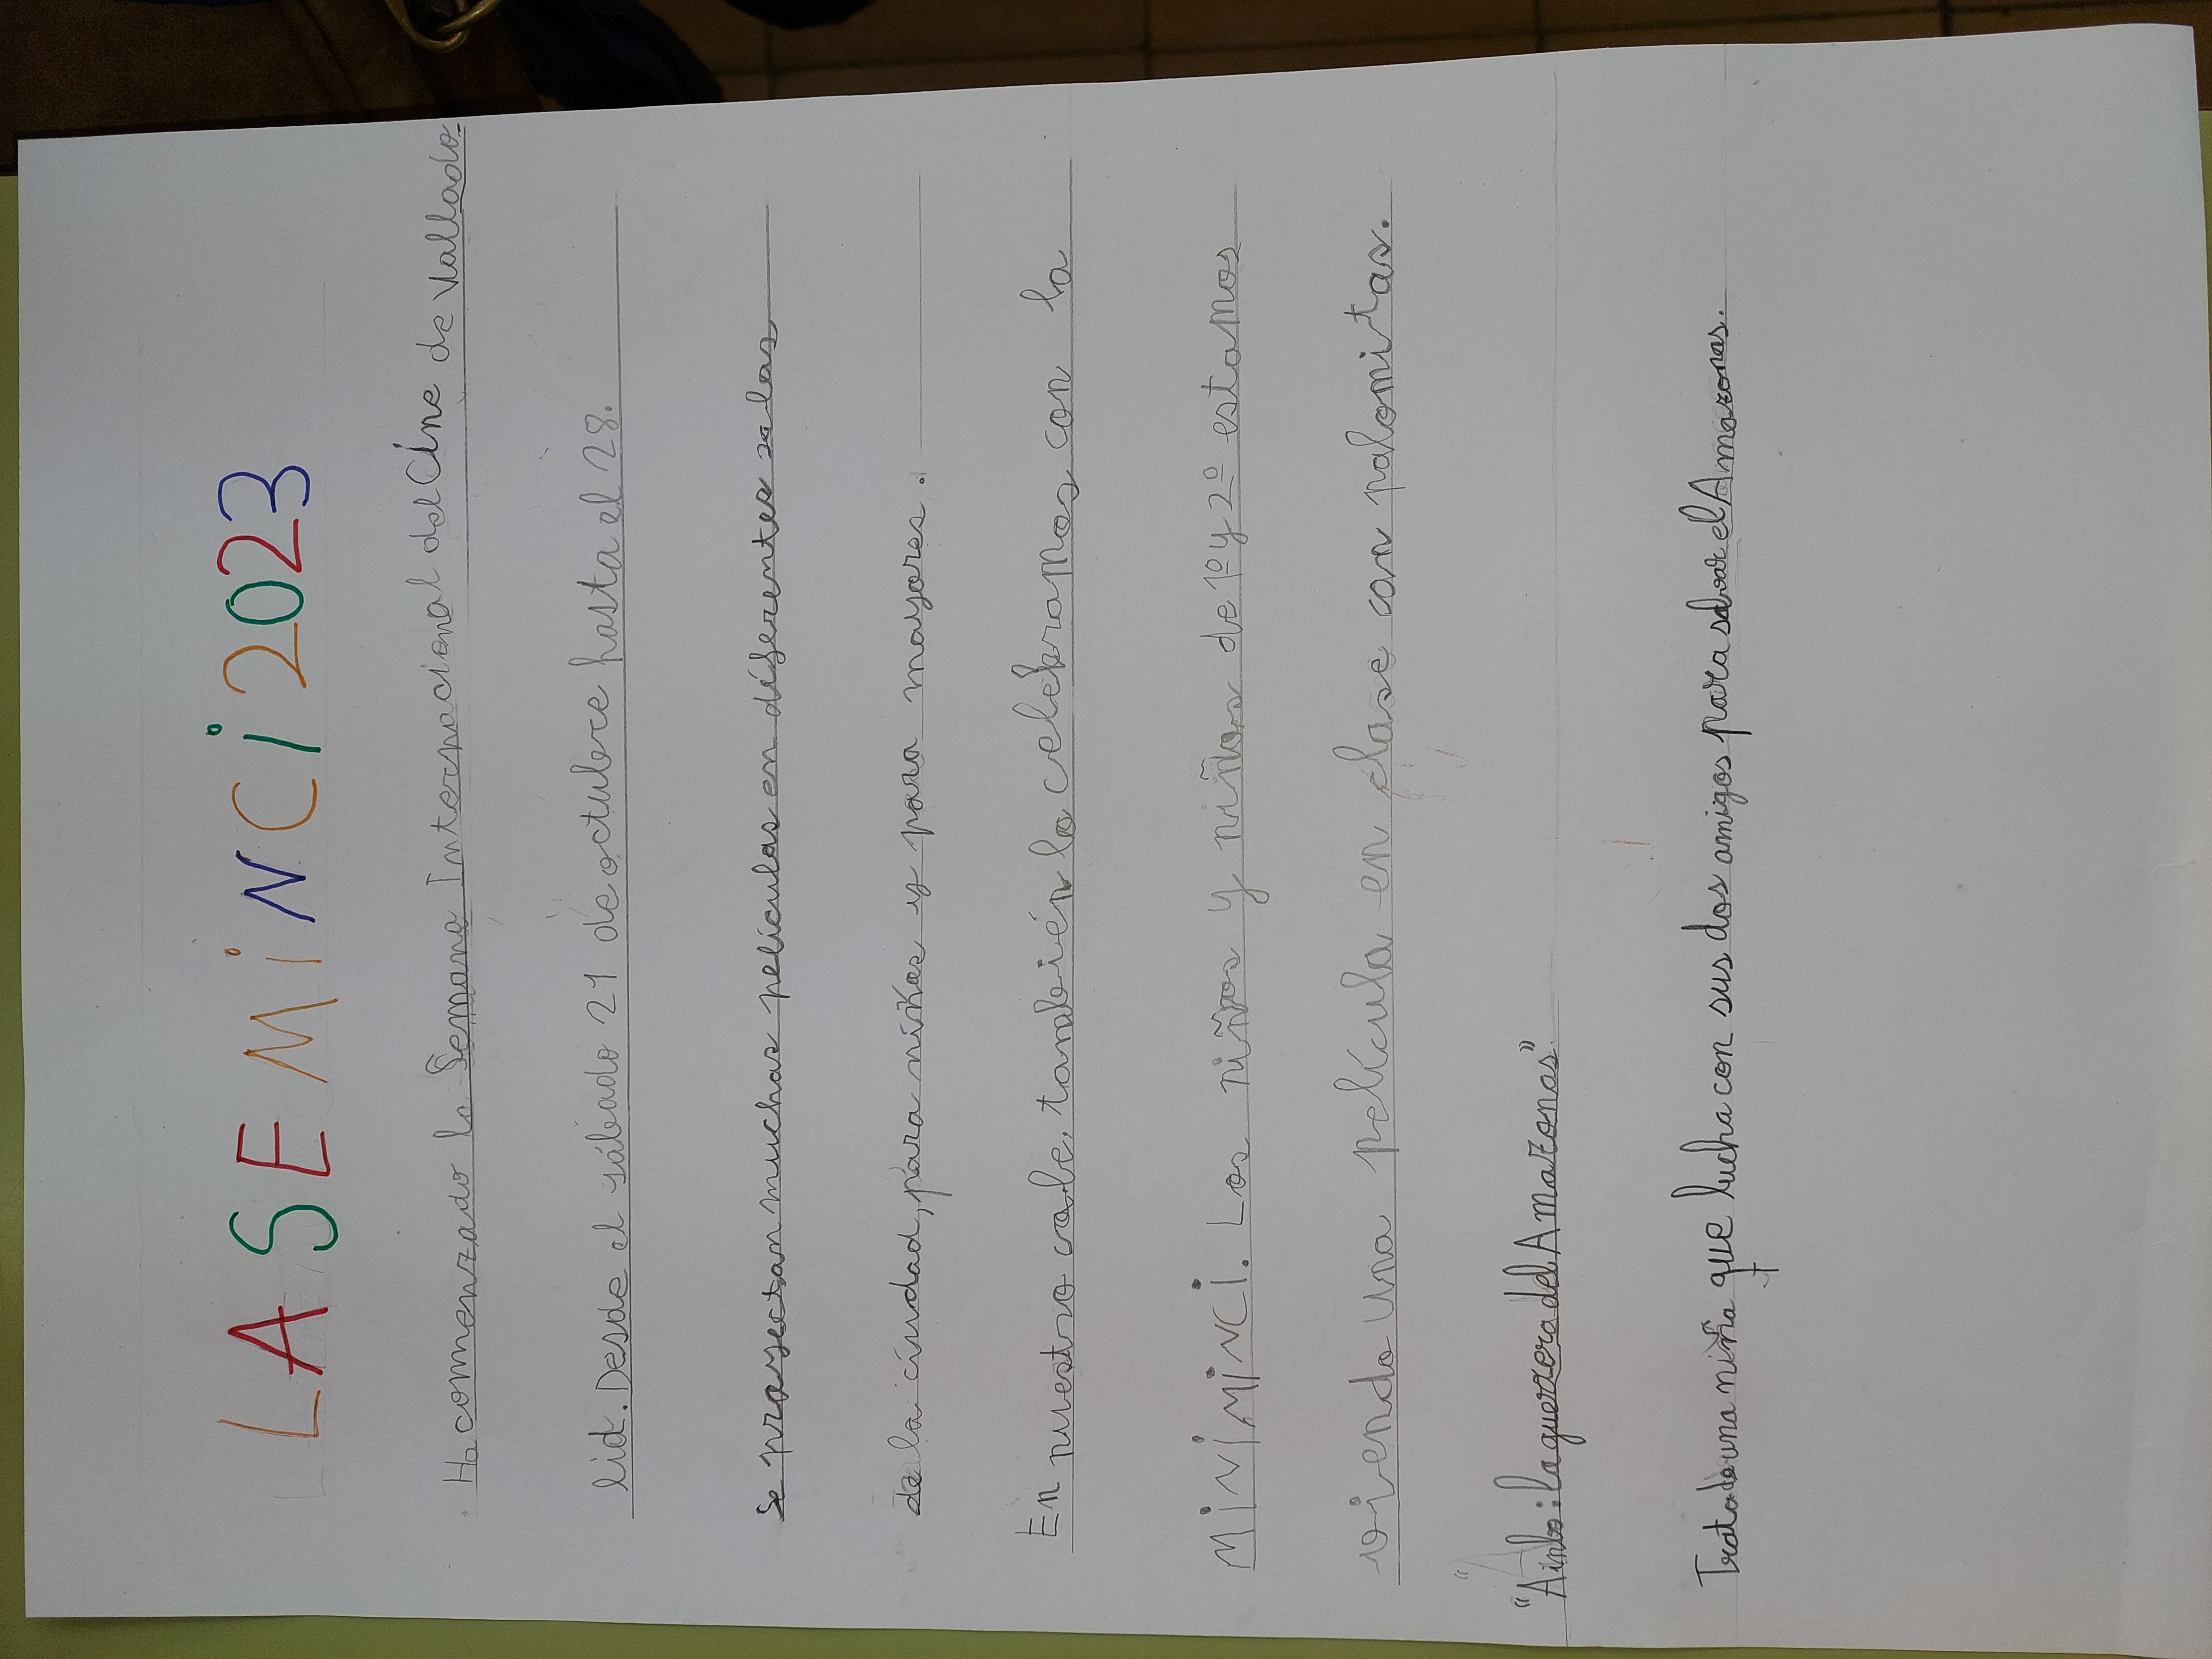 LA SEMINCI 2023
Ha comenzado la Semana Internacional del Cine de Vallado-
lid. Desde el sábado 21 de octubre hasta el 28.
Se proyectan muchas películas en diferentes salas
de la ciudad, para niños y para mayores.
En nuestro cole, también lo celebramos con la
MINIMINCI. Los niños y niñas de 1º y 2º estamos
viendo una película en clase con palomitas.
"Ainbo: la guerrera del Amazonas"
Trata de una niña que lucha con sus dos amigos para salvar el Amazonas.